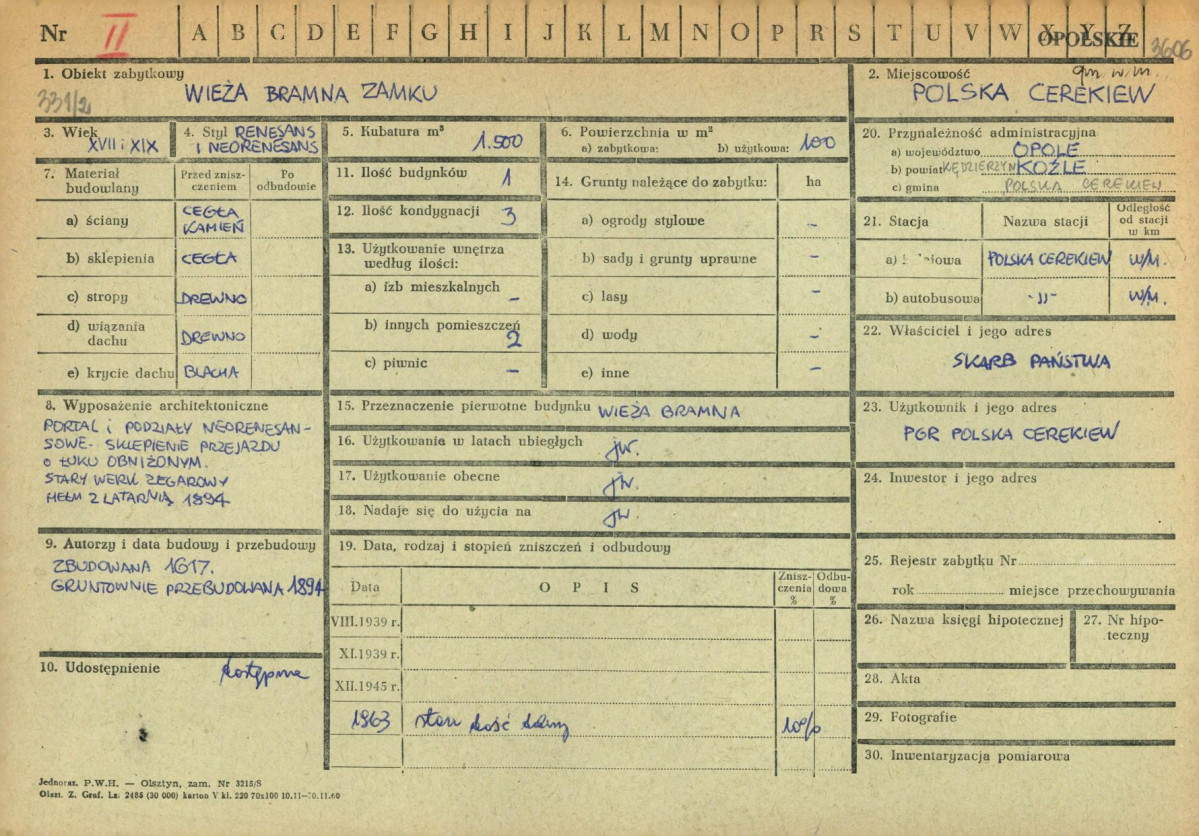 Nr II A B C D E F G H I J K L M N O P R S T U V W X Y Z OPOLSKIE 3606
1. Obiekt zabytkowy
331/2 WIEŻA BRAMNA ZAMKU
2. Miejscowość gm. w/m.
POLSKA CEREKIEW
3. Wiek
XVII i XIX
4. Styl RENESANS
I NEORENESANS
5. Kubatura m³
1.500
6. Powierzchnia w m²
a) zabytkowa: b) użytkowa: 100
20. Przynależność administracyjna
a) województwo OPOLE
b) powiat KĘDZIERZYN KOŹLE
c) gmina POLSKA CEREKIEW
7. Materiał budowlany
Przed zniszczeniem
Po odbudowie
a) ściany CEGŁA
KAMIEŃ
b) sklepienia CEGŁA
c) stropy DREWNO
d) wiązania
dachu DREWNO
e) krycie dachu BLACHA
11. Ilość budynków 1
12. Ilość kondygnacji 3
13. Użytkowanie wnętrza
według ilości:
a) izb mieszkalnych –
b) innych pomieszczeń
2
c) piwnic –
14. Grunty należące do zabytku: ha
a) ogrody stylowe –
b) sady i grunty uprawne –
c) lasy –
d) wody –
e) inne –
21. Stacja Nazwa stacji Odległość
od stacji
w km
a) POLSKA CEREKIEW W/M.
b) autobusowa -II- W/M.
22. Właściciel i jego adres
SKARB PAŃSTWA
8. Wyposażenie architektoniczne
PORTAL i PODZIAŁY NEORENESAN-
SOWE. SKLEPIENIE PRZEJAZDU
O ŁUKU OBNIŻONYM.
STARY WERK ZEGAROWY
HEŁM Z LATARNIĄ 1894
15. Przeznaczenie pierwotne budynku WIEŻA BRAMNA
16. Użytkowania w latach ubiegłych jw.
17. Użytkowanie obecne jw.
18. Nadaje się do użycia na jw.
23. Użytkownik i jego adres
PGR POLSKA CEREKIEW
24. Inwestor i jego adres
9. Autorzy i data budowy i przebudowy
ZBUDOWANA 1617.
GRUNTOWNIE PRZEBUDOWANA 1894
19. Data, rodzaj i stopień zniszczeń i odbudowy
Data O P I S Znisz-
czenia
% Odbu-
dowa
%
VIII.1939 r.
XI.1939 r.
XII.1945 r.
1963 stan dość dobry 10%
10. Udostępnienie dostępna
25. Rejestr zabytku Nr
rok miejsce przechowywania
26. Nazwa księgi hipotecznej
27. Nr hipo-
teczny
28. Akta
29. Fotografie
30. Inwentaryzacja pomiarowa
Jednoraz. P.W.H. — Olsztyn, zam. Nr 3215/S
Olszt. Z. Graf. Lz. 2485 (30 000) karton V kl. 220 70x100 10.11—30.11.60